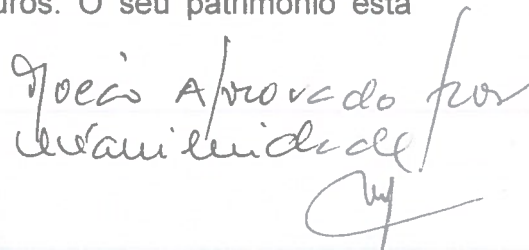 uros. O seu património está
Moção Aprovado por
unanimidade